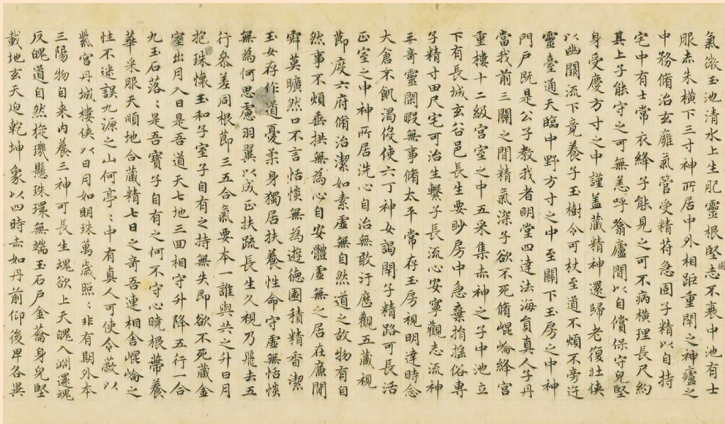 氣微玉池清水上生肥靈根堅志不衰中池有士
服赤朱橫下三寸神所居中外相距重閉之神廬之
中務脩治玄靡氣管受精苻急固子精以自持
宅中有士常衣絳子能見之可不病橫理長尺約
其上子能守之可無恙呼翕廬間以自償保守皃堅
身受慶方寸之中謹盖藏精神還歸老復壯俠
以幽闕流下竟養子玉樹令可杖至道不煩不旁迕
靈臺通天臨中野方寸之中至關下玉房之中神
門戶既是公子教我者明堂四達法海貟真人子丹
當我前三關之間精氣深子欲不死脩崐崘絳宮
重樓十二級宮室之中五采集赤神之子中池立
下有長城玄谷邑長生要眇房中急棄捐搖俗專
子精寸田尺宅可治生繫子長流心安寧觀志流神
三奇靈閑暇無事脩太平常存玉房視明達時念
大倉不飢渴役使六丁神女謁閉子精路可長活
正室之中神所居洗心自治無敢汙歷觀五藏視
節度六府脩治潔如素虛無自然道之故物有自
然事不煩垂拱無為心自安體虛無之居在廉間
寂莫曠然口不言恬惔無為遊德園積精香潔
玉女存作道憂柔身獨居扶養性命守虛無恬惔
無為何思慮羽翼以成正扶疏長生久視乃飛去五
行參差同根節三五合氣要本一誰與共之升日月
抱珠懷玉和子室子自有之持無失即欲不死藏金
室出月入日是吾道天七地三回相守升降五行一合
九玉石落〻是吾寶子自有之何不守心曉根蔕養
華采服天順地合藏精七日之奇吾連相舍崐崘之
性不迷誤九源之山何亭〻中有真人可使令蔽以
紫宮丹城樓俠以日月如明珠萬歲照〻非有期外本
三陽物自来內養三神可長生魂欲上天魄入淵還魂
反魄道自然琁璣懸珠環無端玉石戶金籥身皃堅
載地玄天迫乾坤象以四時赤如丹前仰後卑各異